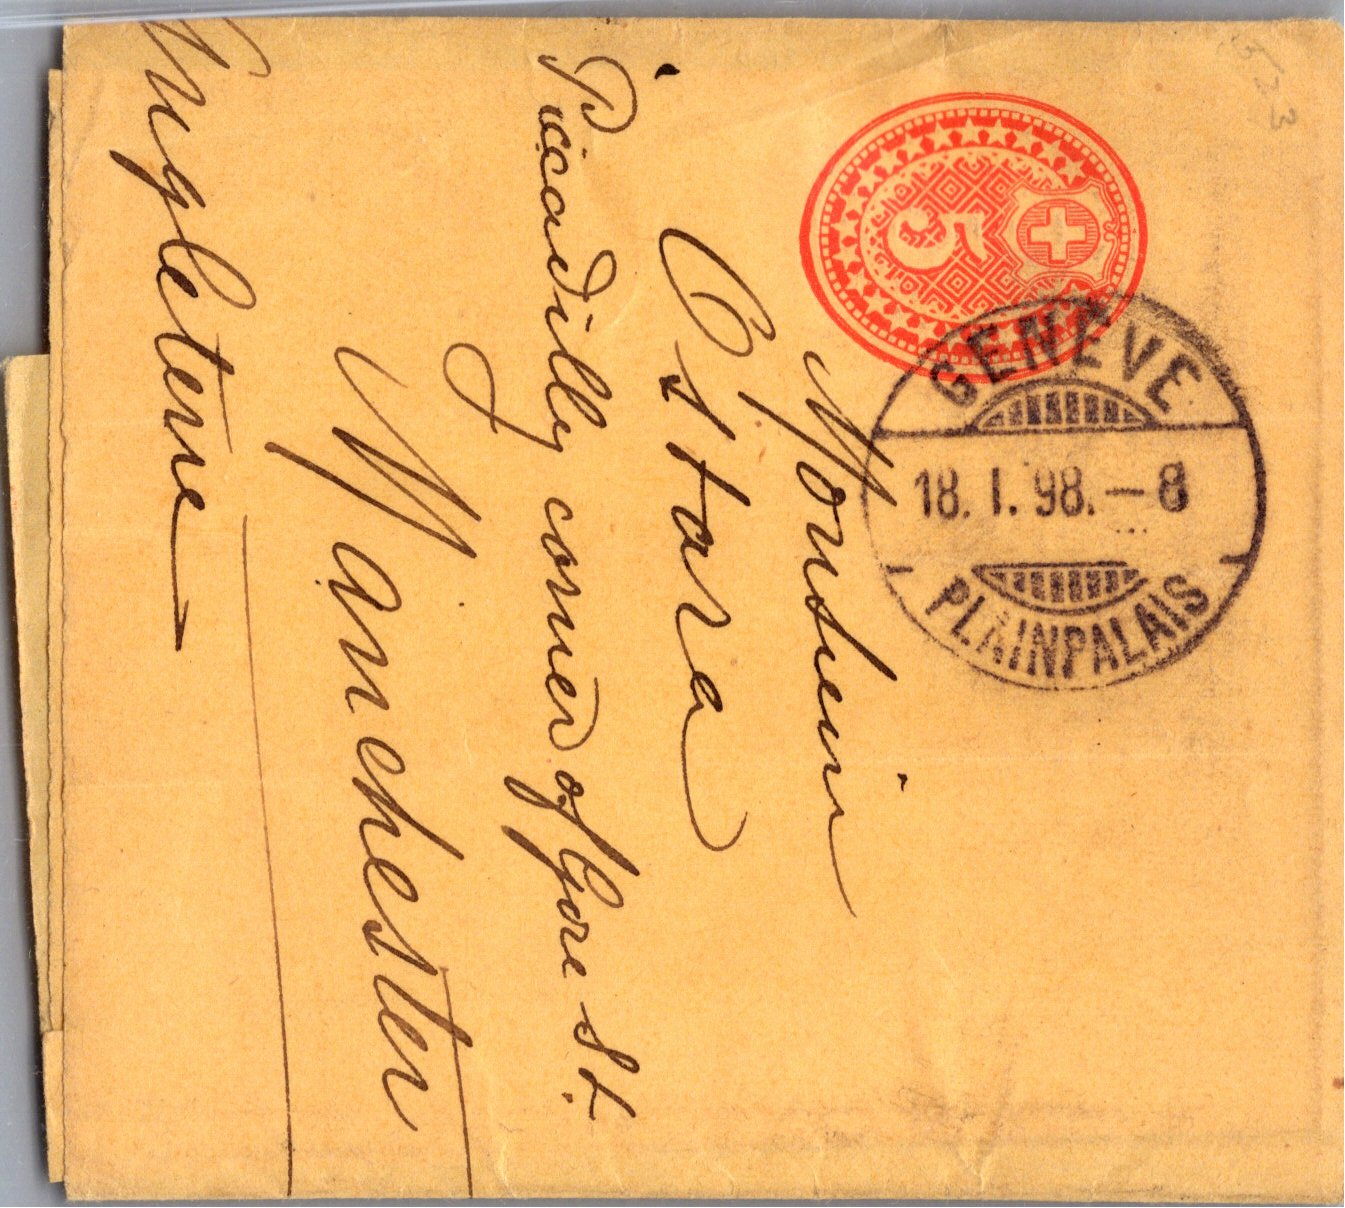 523
5
GENÈVE
18. I. 98. – 8
PLAINPALAIS
Monsieur
Ostara
Piccadilly corner of Gore St.
Manchester
Angleterre